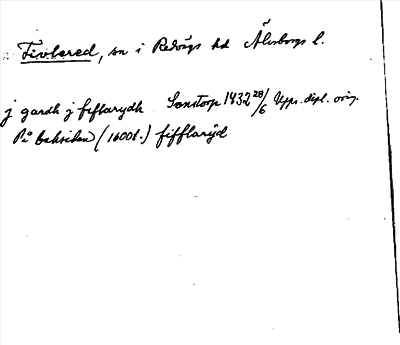 Tivlered, sn i Redvägs hd Älvsborgs l.
j gardh j fiflarydh Sandtorp 1432 28/6 Upps. dipl. orig.
På baksidan (1600t.) fifflarijd